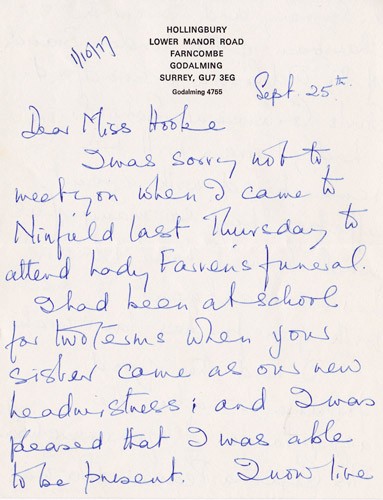 HOLLINGBURY
LOWER MANOR ROAD
FARNCOMBE
GODALMING
SURREY, GU7 3EG
Godalming 4765
1/10/77
Sept. 25th.
Dear Miss Hooke
I was sorry not to
meet you when I came to
Ninfield last Thursday to
attend Lady Farren's funeral.
I had been at school
for two terms when your
sister came as our new
headmistress; and I was
pleased that I was able
to be present. I now live